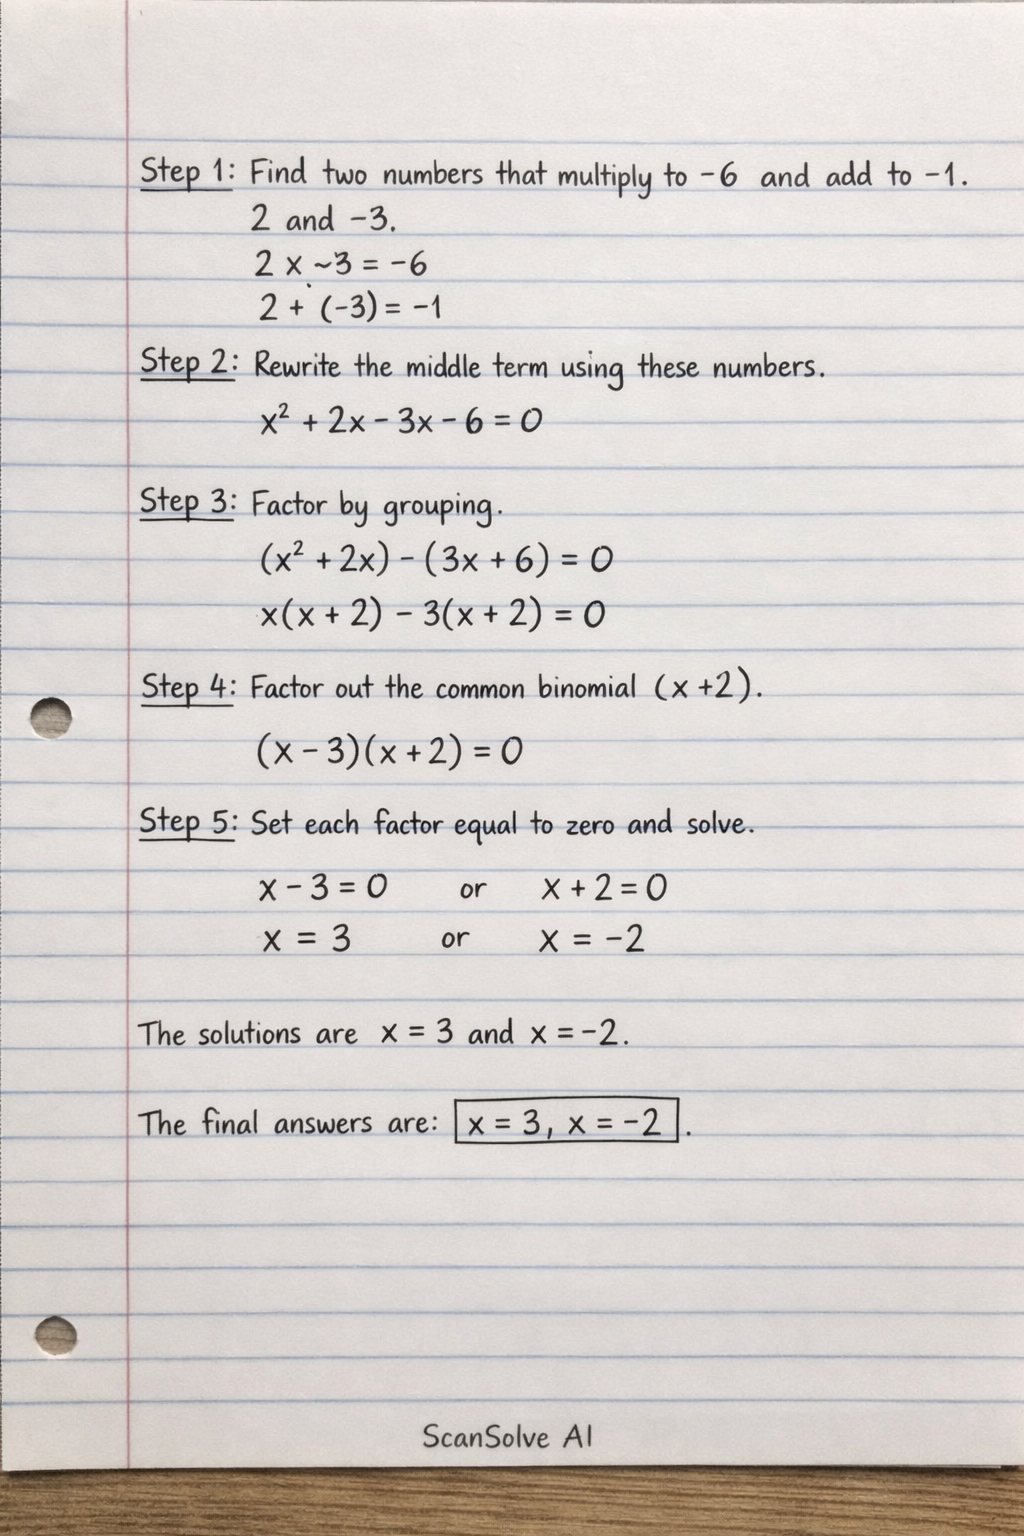 Step 1: Find two numbers that multiply to -6 and add to -1.
2 and -3.
2 x ~3 = -6
2 + (-3) = -1
Step 2: Rewrite the middle term using these numbers.
x² + 2x - 3x - 6 = 0
Step 3: Factor by grouping.
(x² + 2x) - (3x + 6) = 0
x(x + 2) - 3(x + 2) = 0
Step 4: Factor out the common binomial (x +2).
(x - 3)(x + 2) = 0
Step 5: Set each factor equal to zero and solve.
x - 3 = 0 or x + 2 = 0
x = 3 or x = -2
The solutions are x = 3 and x = -2.
The final answers are: x = 3, x = -2.
ScanSolve AI